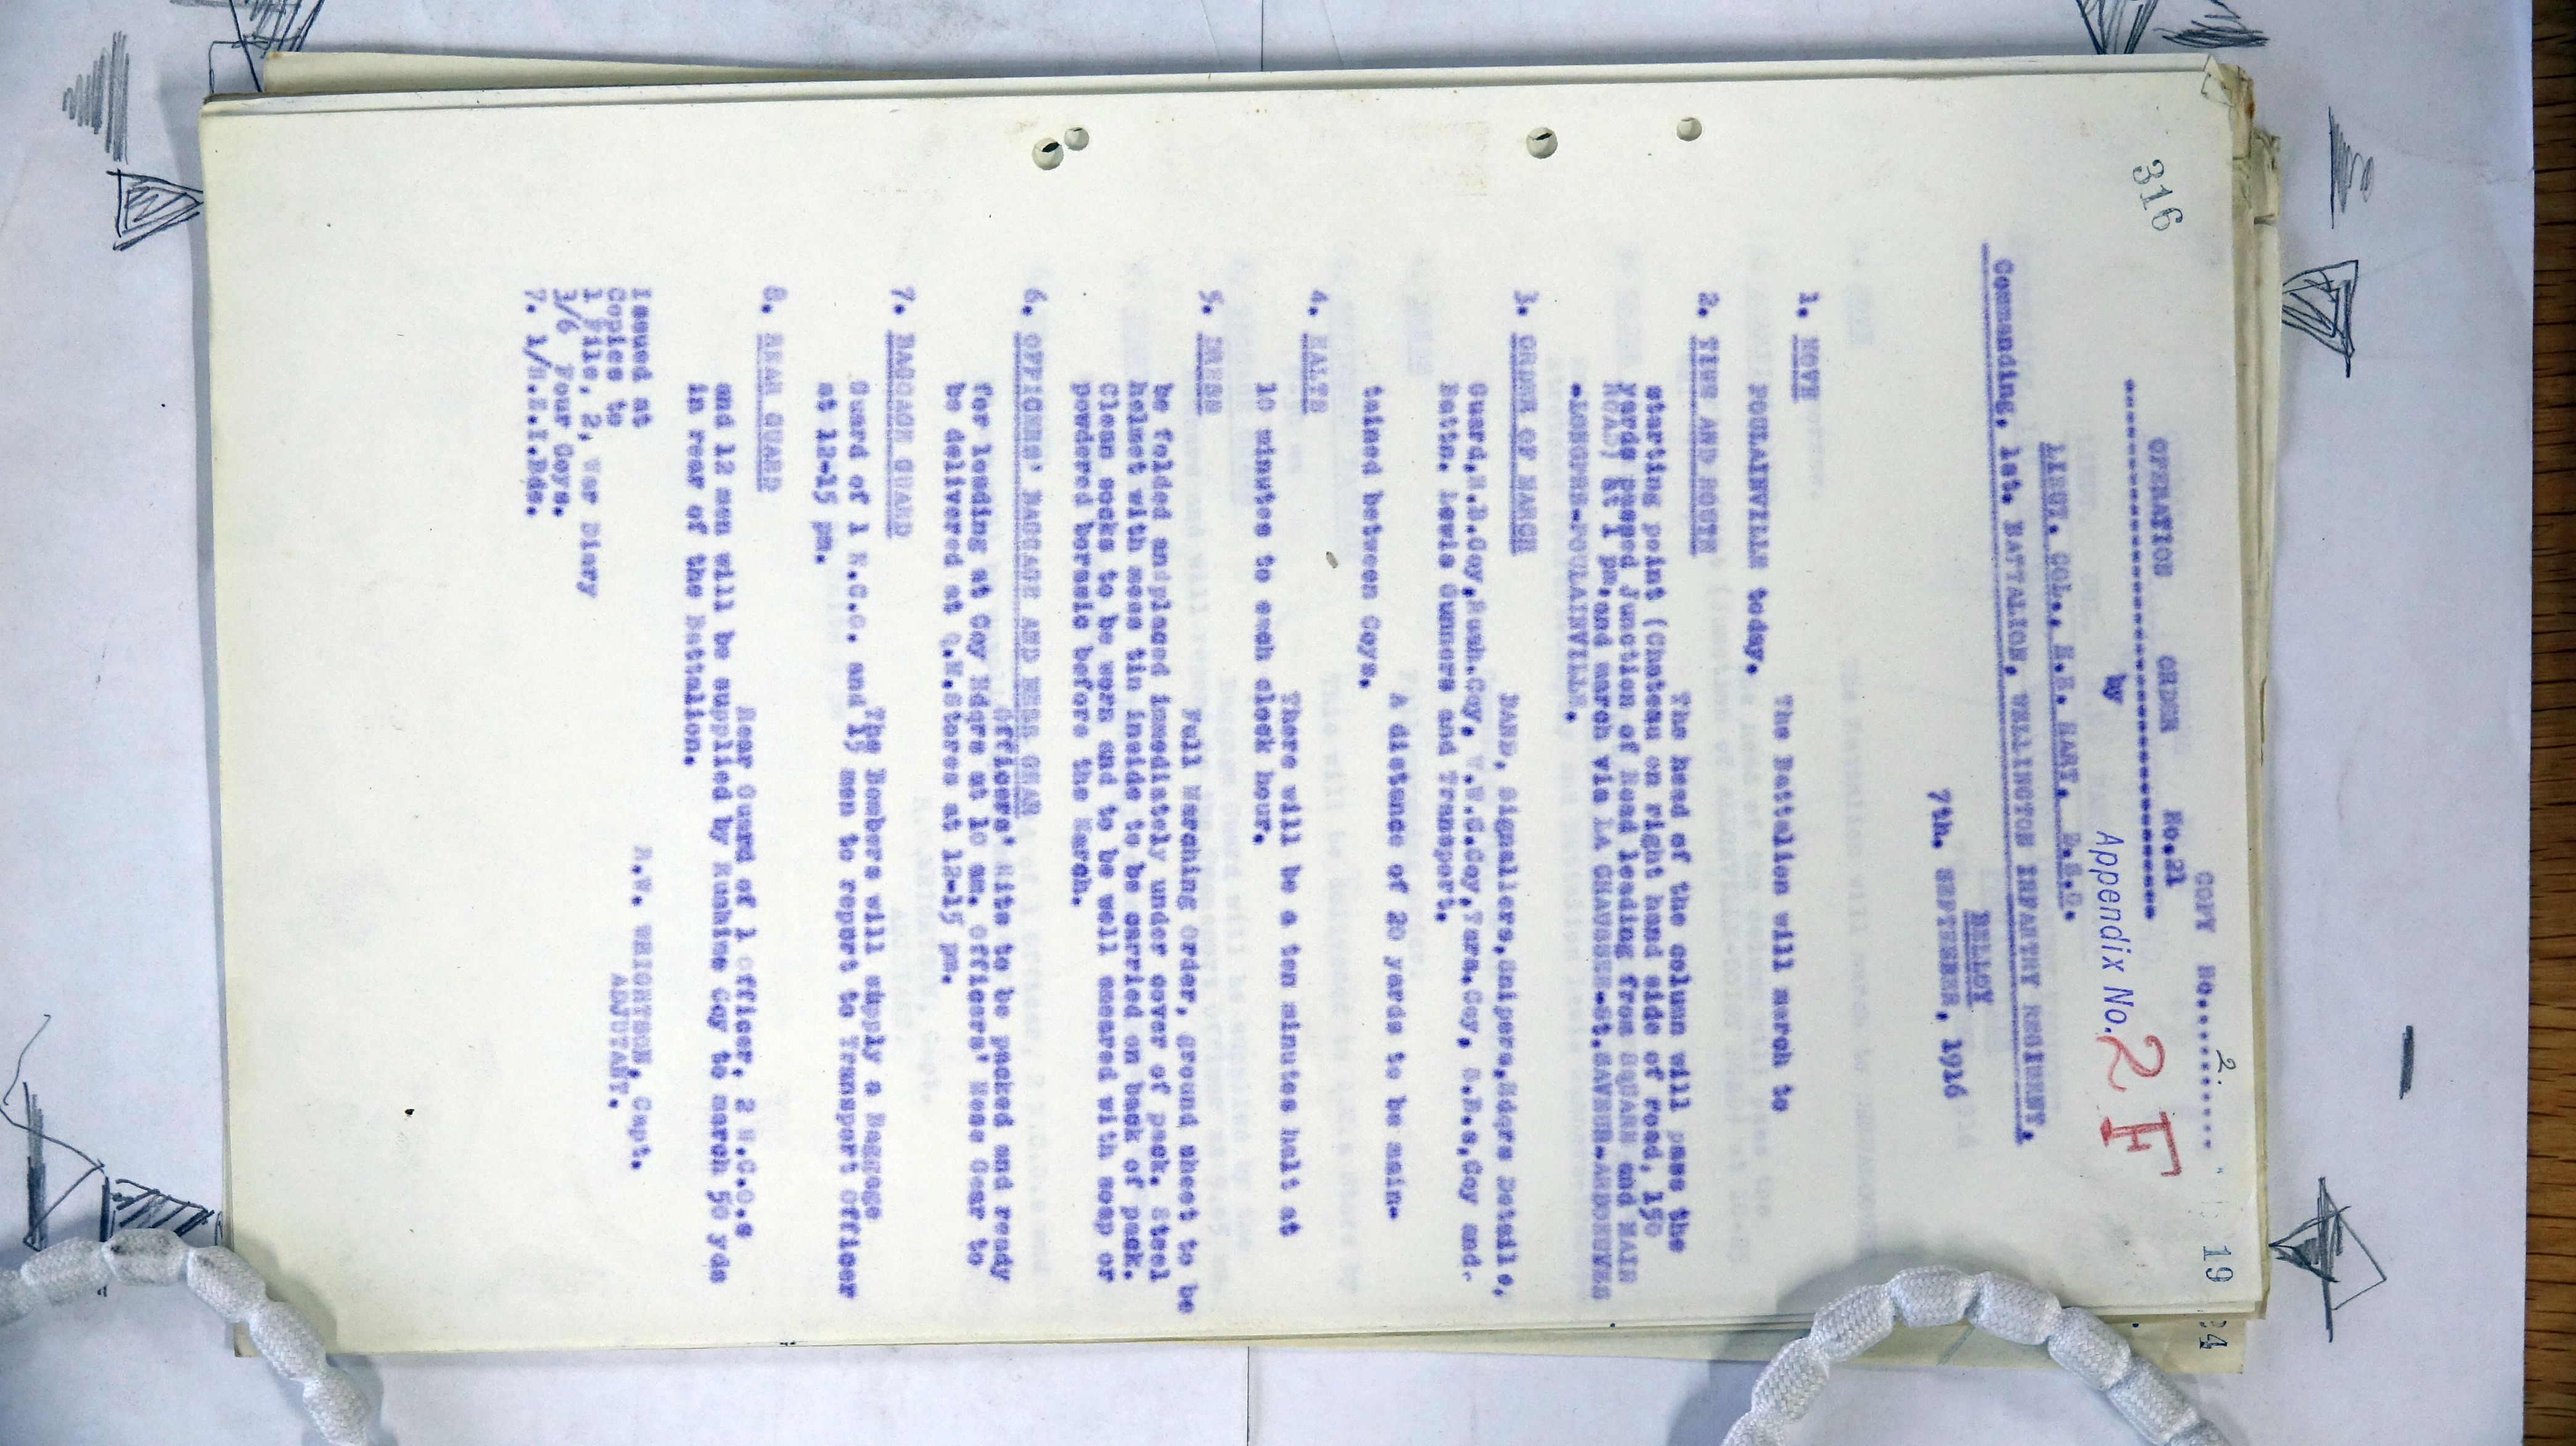 316
COPY NO.........
2.
19
24
OPERATION ORDER No.21
by
Appendix No. 2 F
LIEUT. COL., H.E. HART, D.S.O.
Commanding, 1st. BATTALION, WELLINGTON INFANTRY REGIMENT.
BELLOY
7th. SEPTEMBER, 1916
1. MOVE
The Battalion will march to
POULAINVILLE today.
2. TIME AND ROUTE
The head of the column will pass the
starting point (Chateau on right hand side of road, 150
yards passed Junction of Road leading from SQUARE and MAIN
ROAD) at 1 pm, and march via LA CHAUSSEE-St.SAVEUR-ARGOEUVES
-LONGPRE-POULAINVILLE.
3. ORDER OF MARCH
BAND, Signallers,Snipers,Hdqrs Details,
Guard,H.B.Coy,Ruah.Coy, W.W.C.Coy,Tara.Coy, L.B.s,Coy and
Battn. Lewis Gunners and Transport.
A distance of 20 yards to be main-
tained between Coys.
4. HALTS
There will be a ten minutes halt at
10 minutes to each clock hour.
5. DRESS
Full Marching Order, ground sheet to be
be folded and placed immediately under cover of pack. Steel
helmet with mess tin inside to be carried on back of pack.
Clean socks to be worn and to be well smeared with soap or
powdered boracic before the March.
6. OFFICERS' BAGGAGE AND MESS GEAR
Officers' Kits to be packed and ready
for loading at Coy Hdqrs at 10 am. Officers' Mess Gear to
be delivered at Q.M.Stores at 12-15 pm.
7. BAGGAGE GUARD
The Bombers will supply a Baggage
Guard of 1 N.C.O. and 15 men to report to Transport Officer
at 12-15 pm.
8. REAR GUARD
Rear Guard of 1 Officer, 2 N.C.O.s
and 12 men will be supplied by Ruahine Coy to march 50 yds
in rear of the Battalion.
Issued at
Copies to
1 File, 2, War Diary
3/6 Four Coys.
7. 1/N.Z.I.Bde.
WRIGHTSON, Capt.
ADJUTANT.